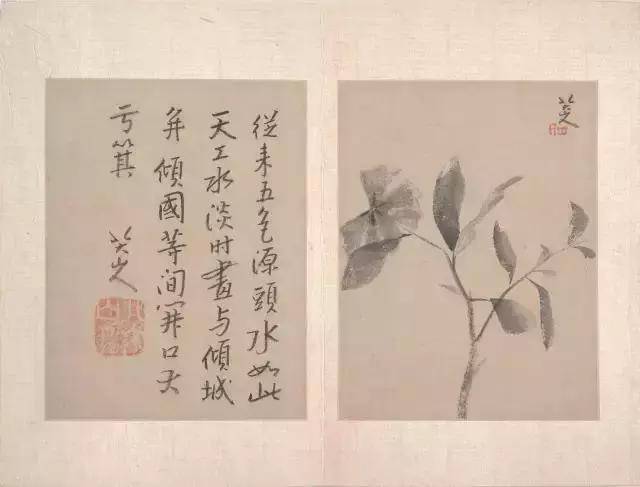 從来五色源頭水如此
天工水淡时畫与傾城
并傾國等间開口
亏箕
八大山人
八大山人